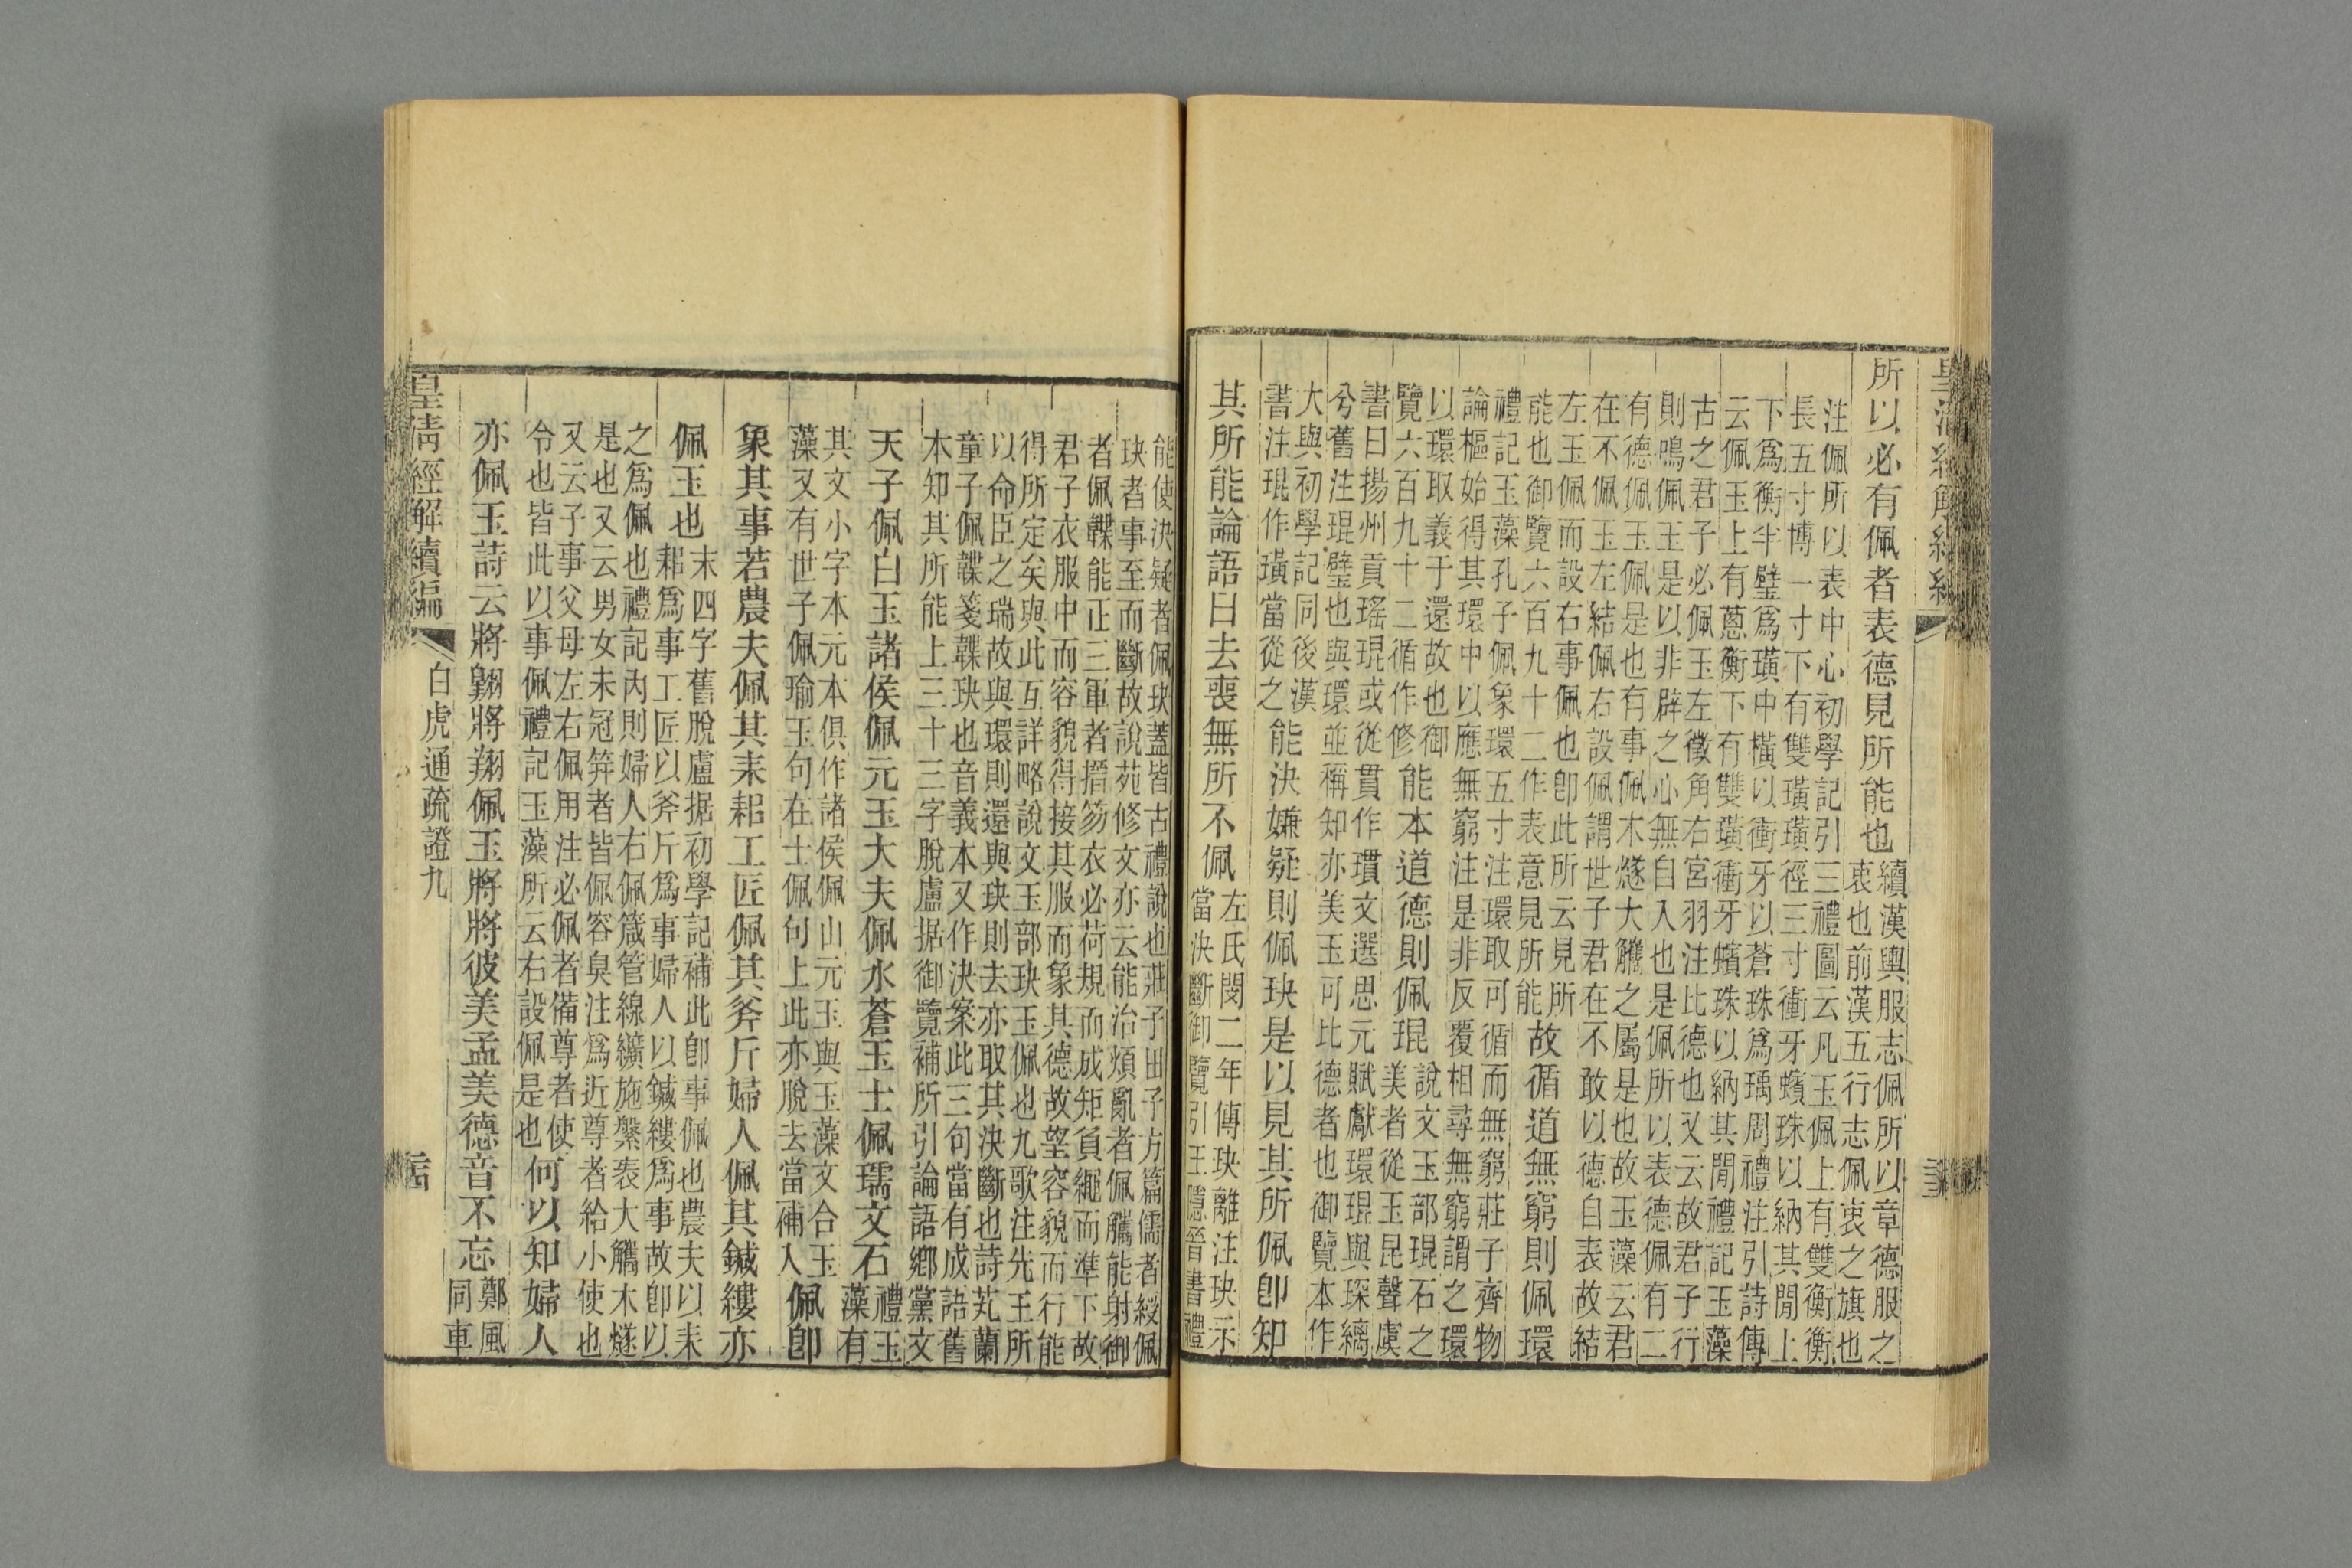 所以必有佩者表德見所能也
續漢輿服志佩所以章德服之
衷也前漢五行志佩衷之旗也
注佩所以表中心初學記引三禮圖云凡玉佩上有雙衡衡
長五寸博一寸下有雙璜璜徑三寸衝牙蠙珠以納其閒上
下爲衡半璧爲璜中橫以衝牙以蒼珠爲瑀周禮注引詩傳
云佩玉上有蔥衡下有雙璜衝牙蠙珠以納其閒禮記玉藻
古之君子必佩玉左徵角右宮羽注比德也又云故君子行
則鳴佩玉是以非辟之心無自入也是佩所以表德佩有二
有德佩玉佩是也有事佩木燧大觿之屬是也故玉藻云君
在不佩玉左結佩右設佩謂世子君在不敢以德自表故結
左玉佩而設右事佩也卽此所云見所
能也御覽六百九十二作表意見所能
故循道無窮則佩環
禮記玉藻孔子佩象環五寸注環取可循而無窮莊子齊物
論樞始得其環中以應無窮注是非反覆相尋無窮謂之環
以環取義于還故也御
覽六百九十二循作修
能本道德則佩琨
說文玉部琨石之
美者從玉昆聲虞
書曰揚州貢瑤琨或從貫作瑻文選思元賦獻環琨與琛縭
兮舊注琨璧也與環並稱知亦美玉可比德者也御覽本作
大與初學記同後漢
書注琨作璜當從之
能決嫌疑則佩玦是以見其所佩卽知
其所能論語曰去喪無所不佩
左氏閔二年傳玦離注玦示
當決斷御覽引王隱晉書禮
能使決疑者佩玦蓋皆古禮說也莊子田子方篇儒者綬佩
玦者事至而斷故說苑修文亦云能治煩亂者佩觿能射御
者佩韘能正三軍者搢笏衣必荷規而成矩負繩而準下故
君子衣服中而容貌得接其服而象其德故望容貌而行能
得所定矣與此互詳略說文玉部玦玉佩也九歌注先王所
以命臣之瑞故與環則還與玦則去亦取其決斷也詩芄蘭
童子佩韘箋韘玦也音義本又作決案此三句當有成語舊
本知其所能上三十三字脫盧据御覽補所引論語鄉黨文
天子佩白玉諸侯佩元玉大夫佩水蒼玉士佩瓀文石
禮玉
藻有
其文小字本元本俱作諸侯佩山元玉與玉藻文合玉
藻又有世子佩瑜玉句在士佩句上此亦脫去當補入
佩卽
象其事若農夫佩其耒耜工匠佩其斧斤婦人佩其鍼縷亦
佩玉也
末四字舊脫盧据初學記補此卽事佩也農夫以耒
耜爲事工匠以斧斤爲事婦人以鍼縷爲事故卽以
之爲佩也禮記內則婦人右佩箴管線纊施縏袠大觿木燧
是也又云男女未冠笄者皆佩容臭注爲近尊者給小使也
又云子事父母左右佩用注必佩者備尊者使
令也皆此以事佩禮記玉藻所云右設佩是也
何以知婦人
亦佩玉詩云將翱將翔佩玉將將彼美孟美德音不忘
鄭風
同車
皇清經解續編
白虎通疏證九